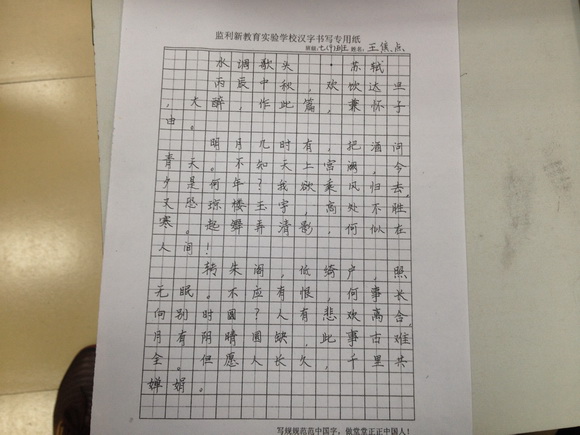 监利新教育实验学校汉字书写专用纸
班级:七(十)班 姓名:王焦点
水调歌头 · 苏轼
丙辰中秋，欢饮达旦
，大醉，作此篇，兼怀子
由。
明月几时有，把酒问
青天。不知天上宫阙，今
夕是何年？我欲乘风归去。
又恐琼楼玉宇，高处不胜
寒。起舞弄清影，何似在
人间！
转朱阁，低绮户，照
无眠。不应有恨，何事长
向别时圆？人有悲欢离合。
月有阴晴圆缺，此事古难
全。但愿人长久，千里共
婵娟。
写规规范范中国字，做堂堂正正中国人！